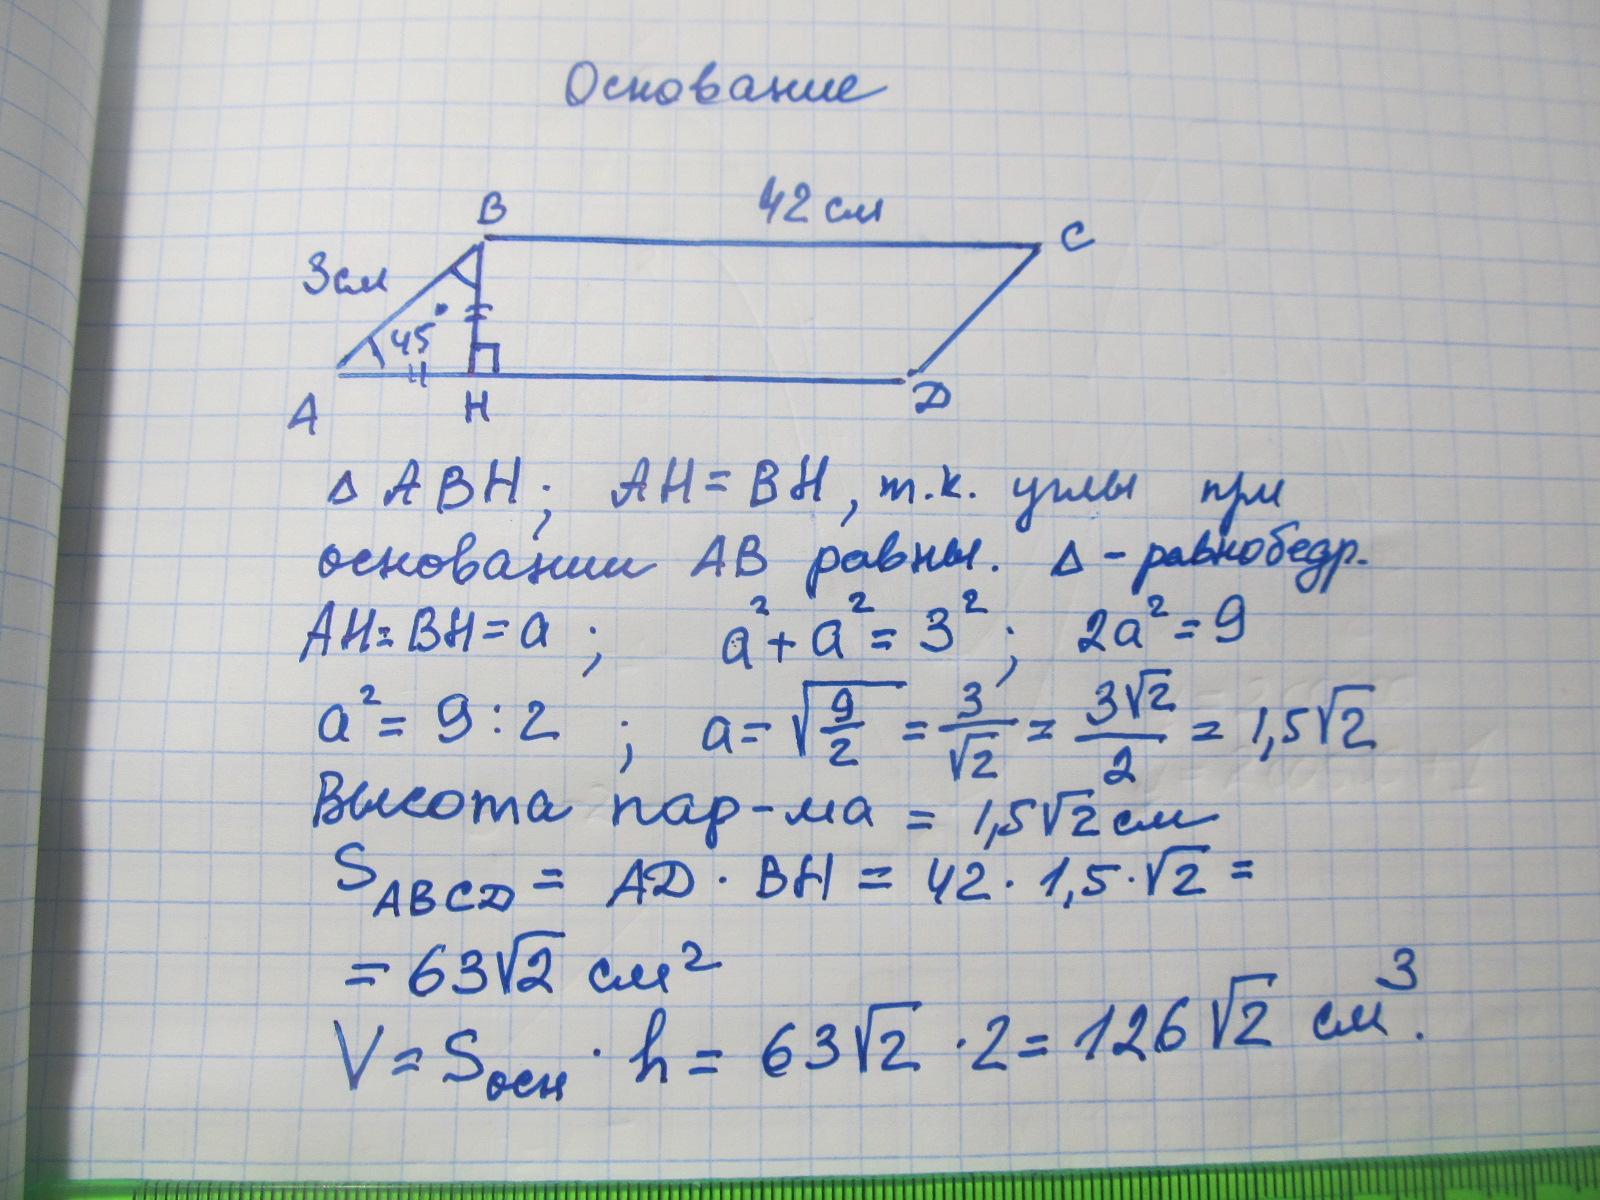 Основание
42 см
B
C
3см
45°
A
H
D
Δ ABH; AH = BH, т.к. углы при
основании AB равны. Δ - равнобедр.
AH = BH = a ; a² + a² = 3² ; 2a² = 9
a² = 9 : 2 ; a = √(9/2) = 3/√2 = 3√2/2 = 1,5√2
Высота пар-ма = 1,5√2 см
S_ABCD = AD · BH = 42 · 1,5 · √2 =
= 63√2 см²
V = S_осн · h = 63√2 · 2 = 126√2 см³.